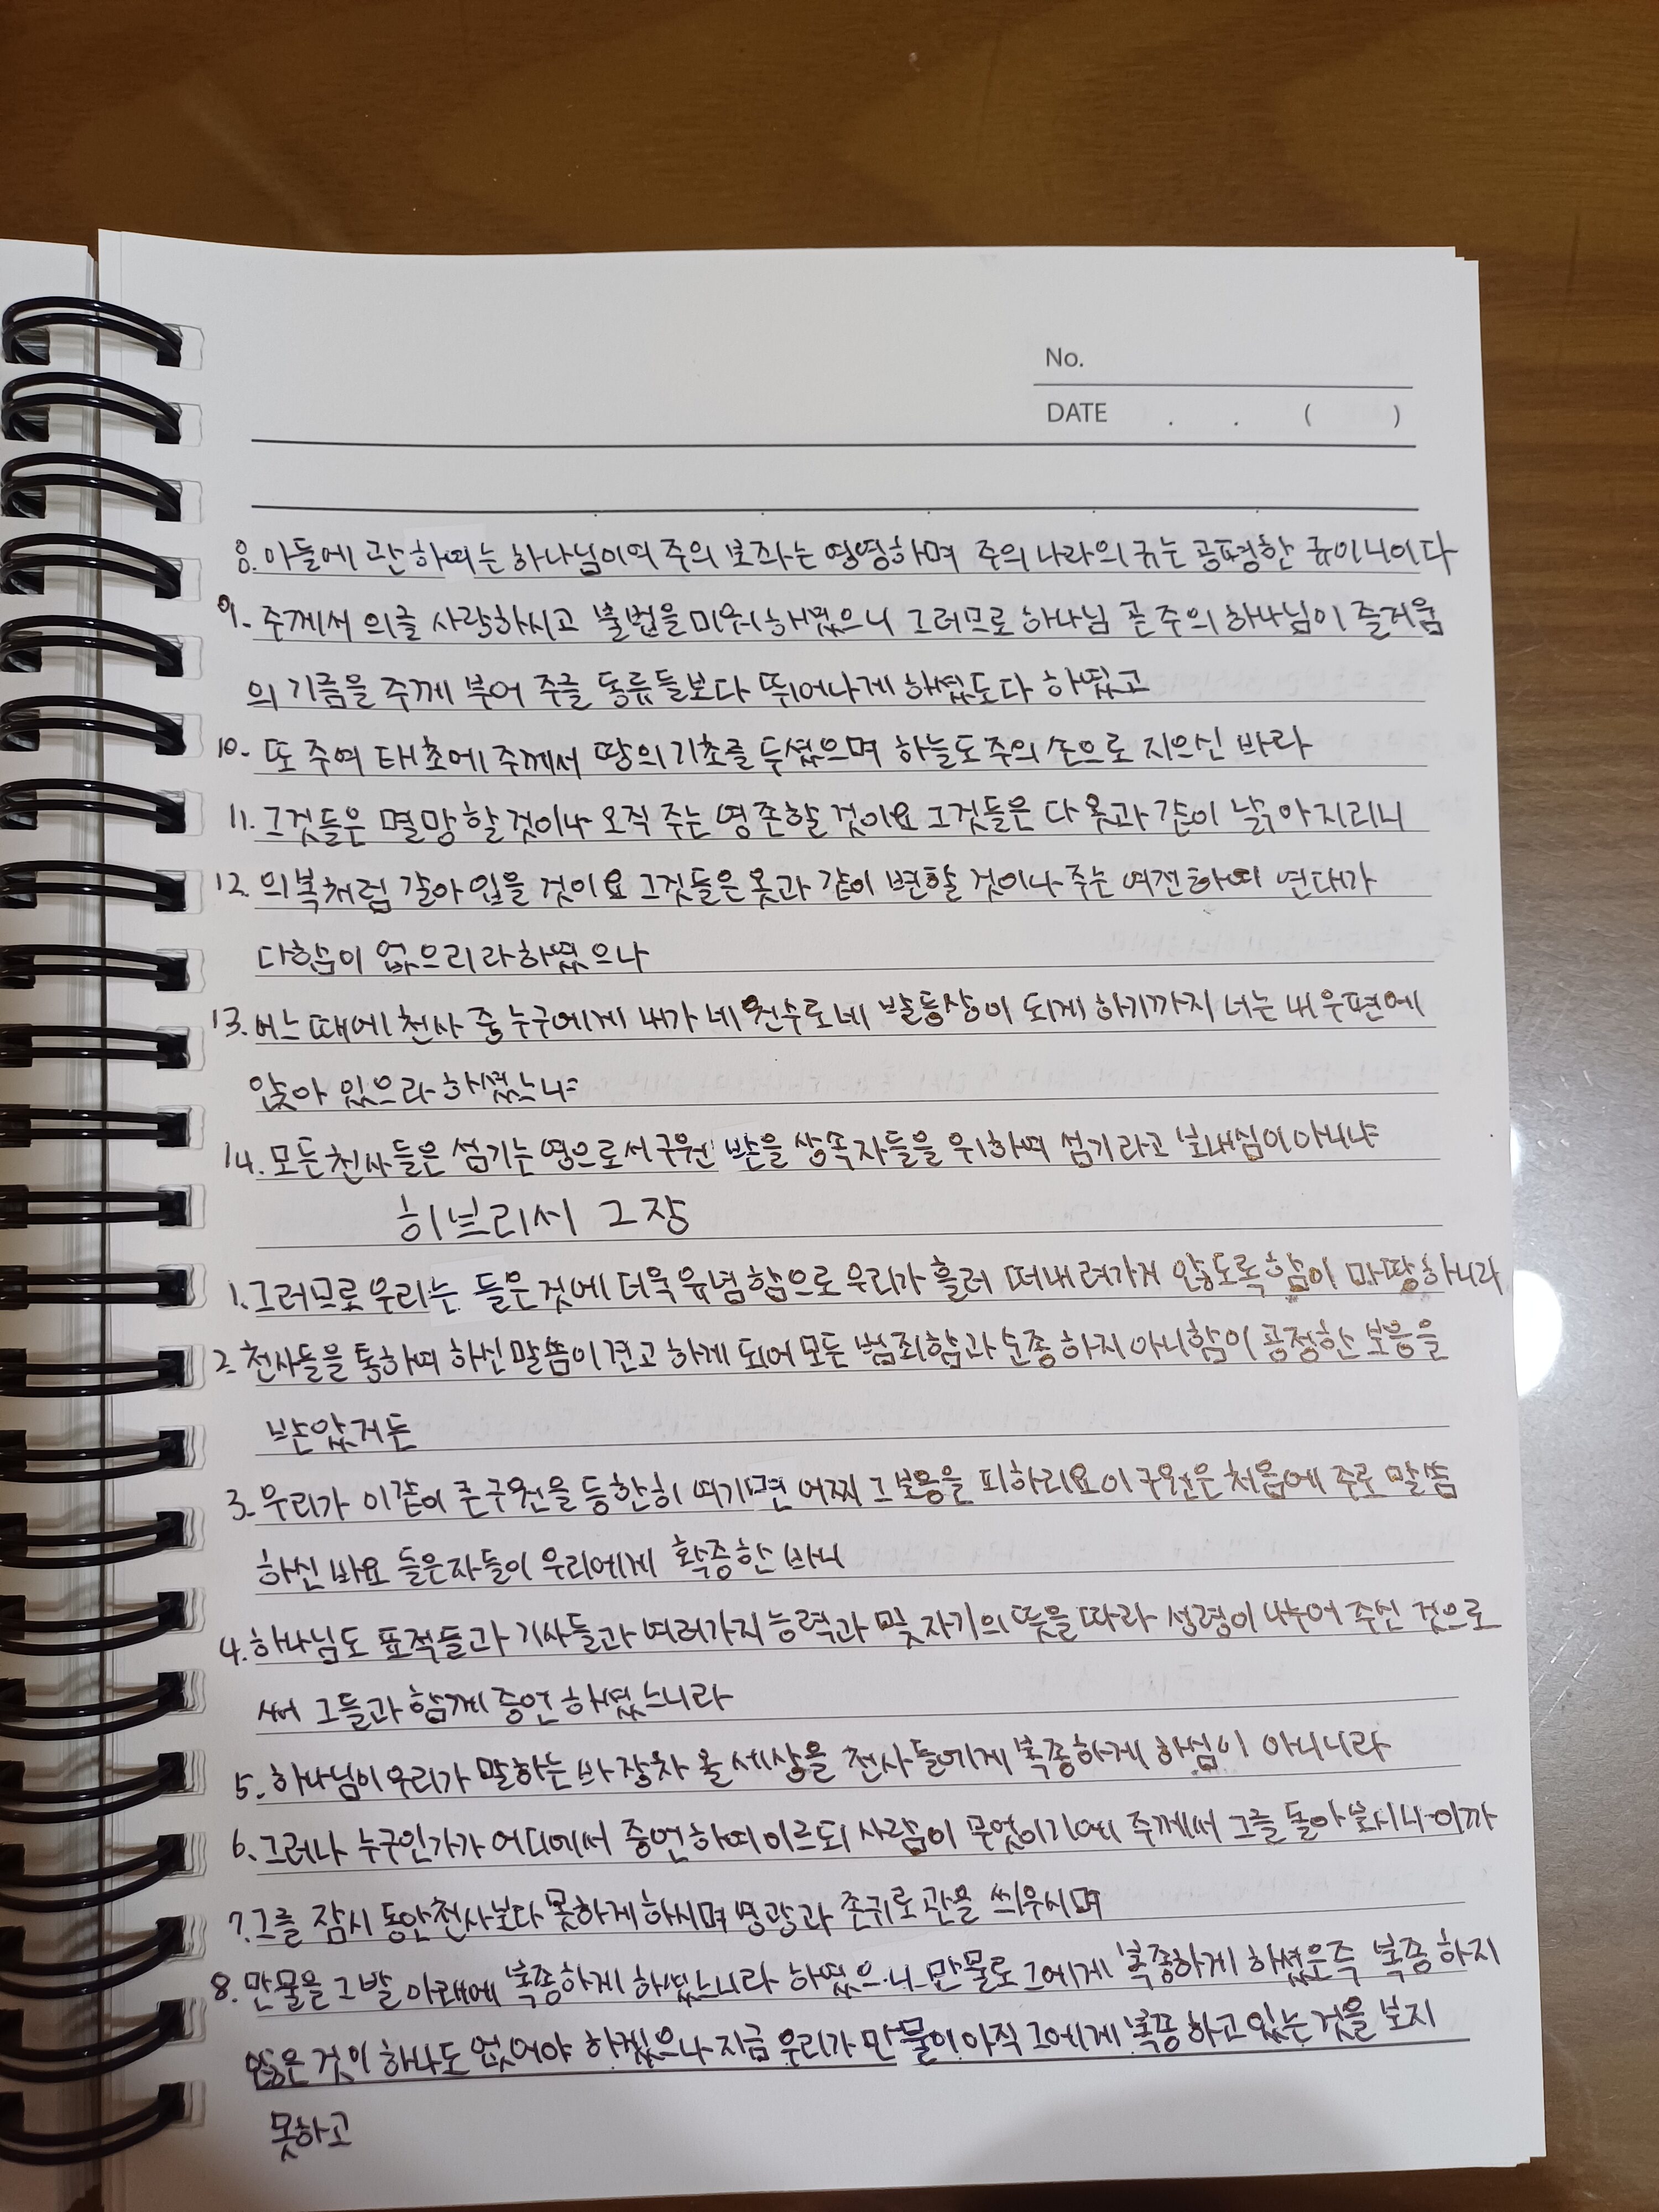 No.
DATE . . ( )
8. 아들에 관하여는 하나님이여 주의 보좌는 영영하며 주의 나라의 규는 공평한 규이니이다
9. 주께서 의를 사랑하시고 불법을 미워하셨으니 그러므로 하나님 곧 주의 하나님이 즐거움
의 기름을 주께 부어 주를 동류들보다 뛰어나게 하셨도다 하였고
10. 또 주여 태초에 주께서 땅의 기초를 두셨으며 하늘도 주의 손으로 지으신 바라
11. 그것들은 멸망할 것이나 오직 주는 영존할 것이요 그것들은 다 옷과 같이 낡아지리니
12. 의복처럼 갈아 입을 것이요 그것들은 옷과 같이 변할 것이나 주는 여전하여 연대가
다함이 없으리라 하였으나
13. 어느 때에 천사 중 누구에게 내가 네 원수로 네 발등상이 되게 하기까지 너는 내 우편에
앉아 있으라 하셨느냐
14. 모든 천사들은 섬기는 영으로서 구원 받을 상속자들을 위하여 섬기라고 보내심이 아니냐
히브리서 2장
1. 그러므로 우리는 들은 것에 더욱 유념함으로 우리가 흘러 떠내려가지 않도록 함이 마땅하니라
2. 천사들을 통하여 하신 말씀이 견고하게 되어 모든 범죄함과 순종하지 아니함이 공정한 보응을
받았거든
3. 우리가 이같이 큰 구원을 등한히 여기면 어찌 그 보응을 피하리요 이 구원은 처음에 주로 말씀
하신 바요 들은 자들이 우리에게 확증한 바니
4. 하나님도 표적들과 기사들과 여러가지 능력과 및 자기의 뜻을 따라 성령이 나누어 주신 것으로
써 그들과 함께 증언하셨느니라
5. 하나님이 우리가 말하는 바 장차 올 세상을 천사들에게 복종하게 하심이 아니니라
6. 그러나 누구인가가 어디에서 증언하여 이르되 사람이 무엇이기에 주께서 그를 돌아보시나이까
7. 그를 잠시 동안 천사보다 못하게 하시며 영광과 존귀로 관을 씌우시며
8. 만물을 그 발 아래에 복종하게 하였느니라 하였으니 만물로 그에게 복종하게 하셨은즉 복종하지
않은 것이 하나도 없어야 하겠으나 지금 우리가 만물이 아직 그에게 복종하고 있는 것을 보지
못하고